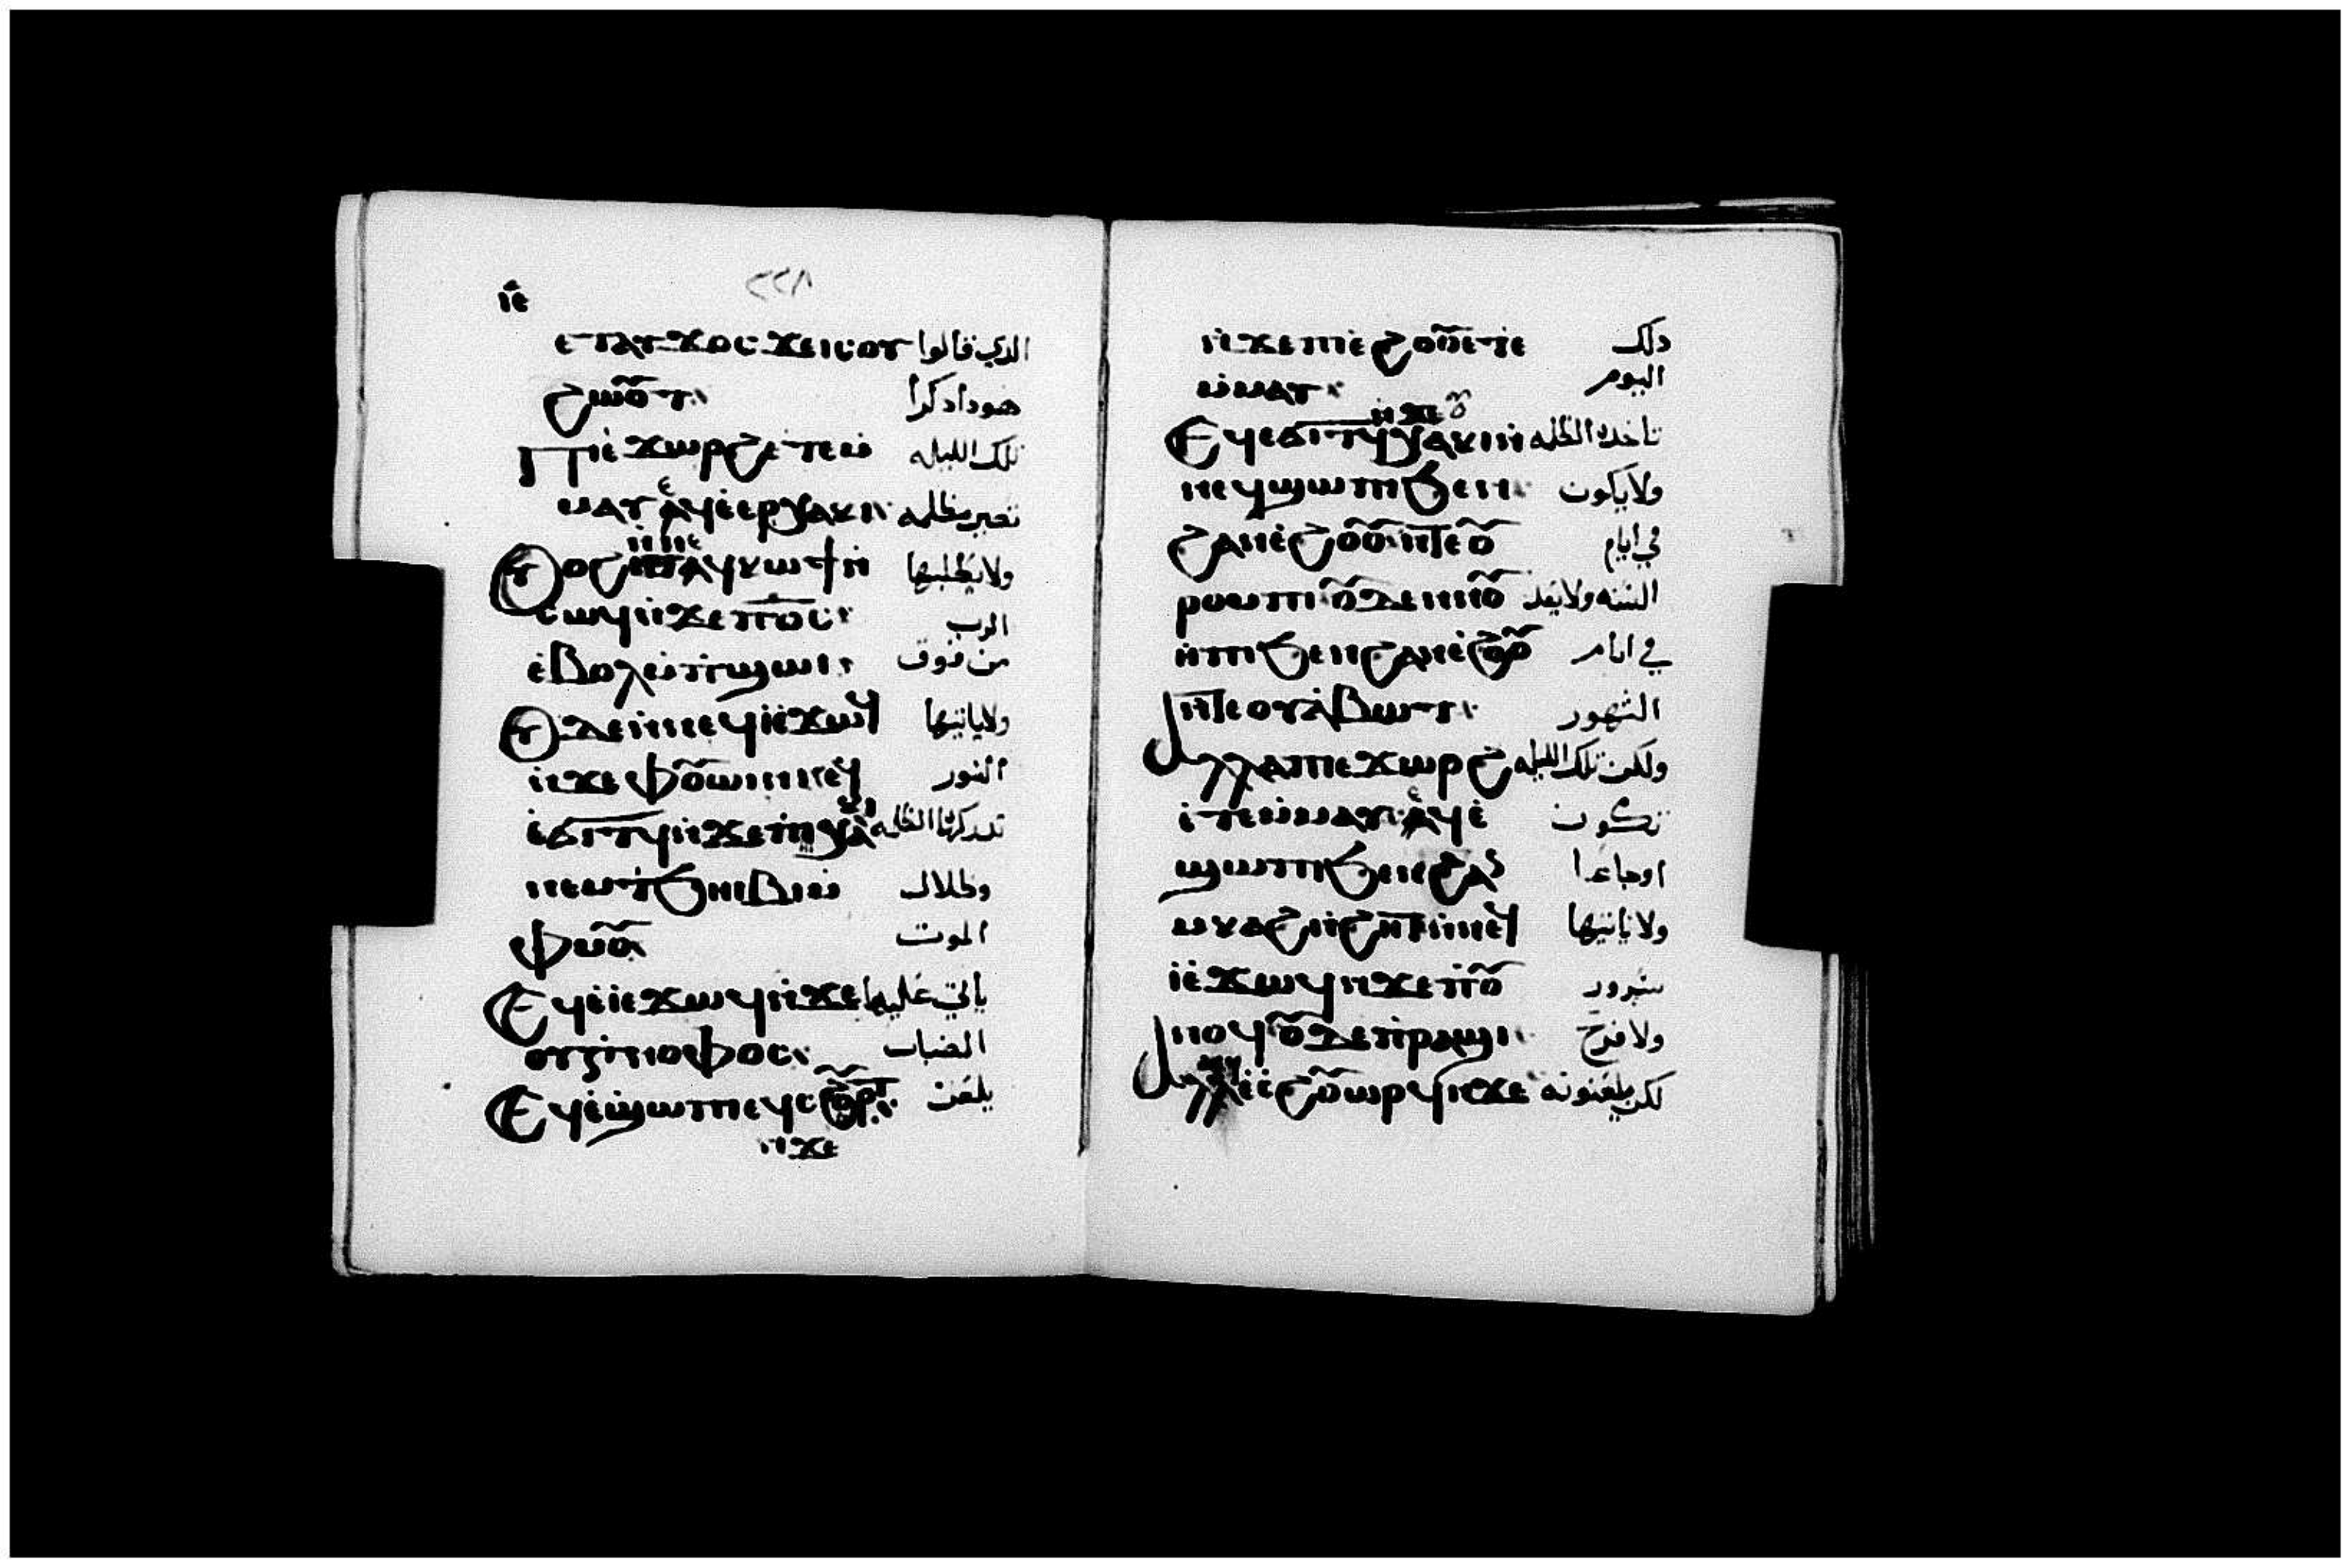 ⲓ̅ⲉ̅
٢٢٨
ⲉⲧⲁⲩϫⲟⲥ ϫⲉ ⲓⲥ ⲟⲩ الذي قالوا
ϩⲱⲟⲩⲧ هوذا ذكرا
Ⲡⲓⲉϫⲱⲣϩ ⲉⲧⲉⲙ تلك الليله
ⲙⲁⲩ ⲉϥⲉⲉⲣⲭⲁⲕⲓ تصير مظلمه
Ⲟⲩⲟϩ ⲛⲛⲉϥⲕⲱϯ ⲛ ولا يطلبها
ⲥⲱϥ ⲛϫⲉ ⲡⲟ̅ⲥ̅ الرب
ⲉⲃⲟⲗ ⲙⲡϣⲱⲓ من فوق
Ⲟⲩⲇⲉ ⲛⲛⲉϥⲓ ⲉϫⲱϥ ولا ياتيها
ⲛϫⲉ ⲫⲟⲩⲱⲓⲛⲓ النور
ⲉϭⲓⲧϥ ⲛϫⲉ ⲡⲭⲁ تدركها الظلمه
ⲛⲉⲙ ⲧϧⲏⲓⲃⲓ ⲙ وظلال
ⲫⲙⲟⲩ الموت
Ⲉϥⲉⲓ ⲉϫⲱϥ ⲛϫⲉ ياتي عليها
ⲟⲩⲅⲛⲟⲫⲟⲥ الضباب
Ⲉϥⲉϣⲱⲡⲓ ⲉϥⲥϩⲟⲩⲟⲣⲧ يلعن
ⲛϫⲉ
ⲛϫⲉ ⲡⲓⲉϩⲟⲟⲩ ⲉⲧⲉ ذلك
ⲙⲙⲁⲩ اليوم
Ⲉϥⲉϭⲓⲧϥ ⲛϫⲉ ⲟⲩⲭⲁⲕⲓ ⲛ تاخذه الظلمه
ⲛⲉϥϣⲱⲡⲓ ϧⲉⲛ ولا يكون
ϩⲁⲛⲉϩⲟⲟⲩ ⲛⲧⲉ ⲟⲩ في ايام
ⲣⲟⲙⲡⲓ ⲟⲩⲇⲉ ⲛⲛⲟⲩ السنه ولا يعد
ⲏⲡⲓ ϧⲉⲛ ϩⲁⲛⲉϩⲟⲟⲩ في ايام
ⲛⲧⲉ ⲟⲩⲁⲃⲱⲧ الشهور
Ⲁⲗⲗⲁ ⲡⲓⲉϫⲱⲣϩ ولكن تلك الليله
ⲉⲧⲉⲙⲙⲁⲩ ⲉϥⲉ تكون
ϣⲱⲡⲓ ϧⲉⲛ ϩⲁⲛ اوجاعا
ⲙⲕⲁϩ ⲛϩⲏⲧ ⲛⲛⲉϥ ولا ياتيها
ⲓ ⲉϫⲱϥ ⲛϫⲉ ⲡⲟⲩ سرور
ⲛⲟϥ ⲟⲩⲇⲉ ⲡⲣⲁϣⲓ ولا فرح
Ⲁⲗⲗⲁ ⲉϥⲉⲥϩⲟⲩⲱⲣϥ ⲛϫⲉ لكن يلعنونه